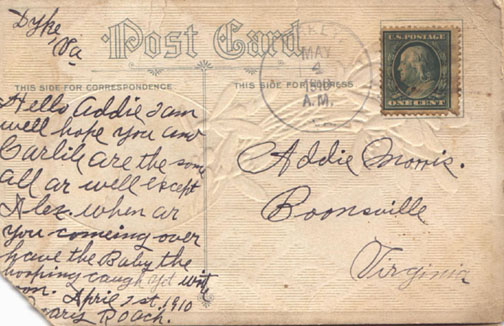 Dyke,
Va
Post Card
THIS SIDE FOR CORRESPONDENCE
THIS SIDE FOR ADDRESS
MAY
4
A.M.
U.S. POSTAGE
ONE CENT
Hello Addie I am
well hope you and
Carlile are the same
all ar well except
Alex. when ar
you comeing over
have the Baby the
hooping caugh yet write
soon. April 21st. 1910
Roach.
Addie Morris.
Boonsville
Virginia